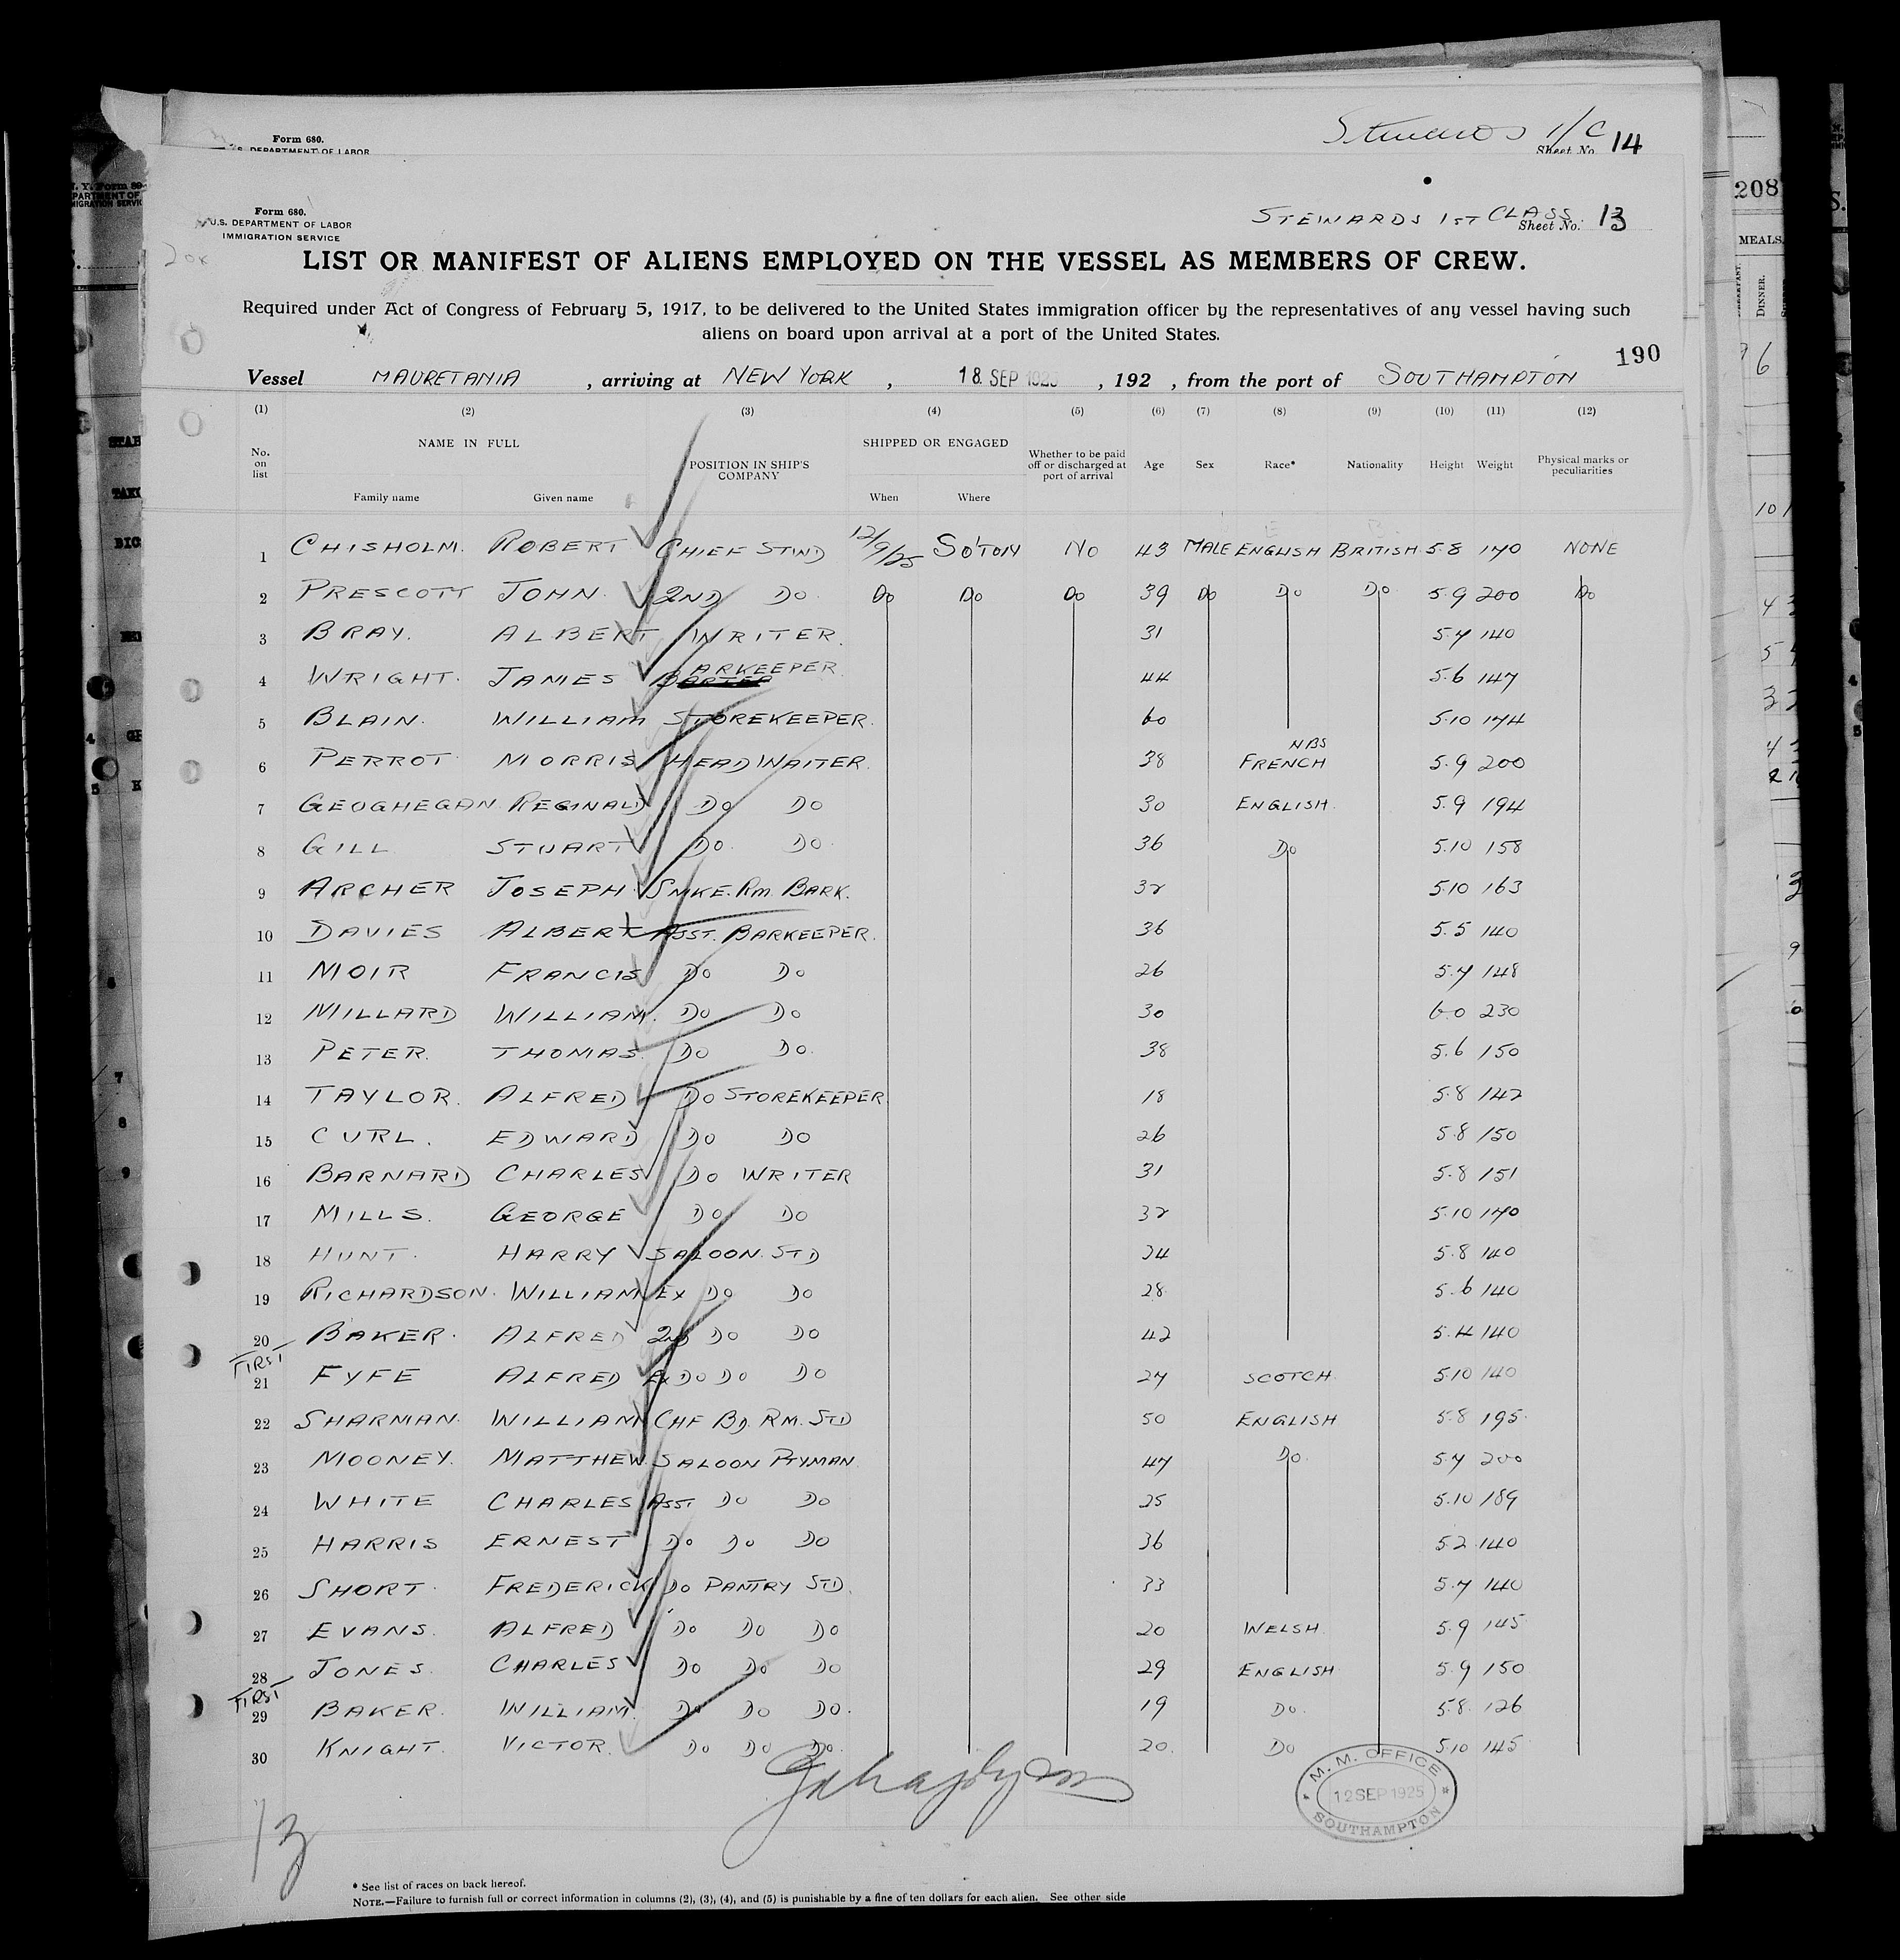 Form 680.
S. DEPARTMENT OF LABOR
Stewards 1/C
Sheet No. 14
Form 680.
U.S. DEPARTMENT OF LABOR
IMMIGRATION SERVICE
STEWARDS 1ST CLASS.
Sheet No. 13
LIST OR MANIFEST OF ALIENS EMPLOYED ON THE VESSEL AS MEMBERS OF CREW.
Required under Act of Congress of February 5, 1917, to be delivered to the United States immigration officer by the representatives of any vessel having such
aliens on board upon arrival at a port of the United States.
190
Vessel MAURETANIA , arriving at NEW YORK , 18 SEP 1925 , 192 , from the port of SOUTHAMPTON
(1) (2) (3) (4) (5) (6) (7) (8) (9) (10) (11) (12)
No. on list NAME IN FULL Family name Given name POSITION IN SHIP'S COMPANY SHIPPED OR ENGAGED When Where Whether to be paid off or discharged at port of arrival Age Sex Race* Nationality Height Weight Physical marks or peculiarities
1 CHISHOLM. ROBERT CHIEF STWD 12/9/25 SO'TON NO 43 MALE ENGLISH BRITISH 5.8 170 NONE
2 PRESCOTT JOHN. 2ND DO. DO DO DO 39 DO DO DO 5.9 200 DO
3 BRAY. ALBERT WRITER. 31 5.7 140
4 WRIGHT. JAMES BARKEEPER. 44 5.6 147
5 BLAIN. WILLIAM STOREKEEPER. 60 5.10 174
6 PERROT MORRIS HEAD WAITER. 38 NBS FRENCH 5.9 200
7 GEOGHEGAN. REGINALD DO DO 30 ENGLISH. 5.9 194
8 GILL STUART DO. DO. 36 DO 5.10 158
9 ARCHER JOSEPH. SMKE. RM. BARK. 32 5.10 163
10 DAVIES ALBERT ASST. BARKEEPER. 36 5.5 140
11 MOIR FRANCIS DO DO 26 5.7 148
12 MILLARD WILLIAM. DO DO 30 6.0 230
13 PETER. THOMAS. DO DO. 38 5.6 150
14 TAYLOR. ALFRED DO STOREKEEPER 18 5.8 142
15 CURL. EDWARD DO DO 26 5.8 150
16 BARNARD CHARLES DO WRITER 31 5.8 151
17 MILLS. GEORGE DO DO 32 5.10 170
18 HUNT. HARRY SALOON. STD 34 5.8 140
19 RICHARDSON. WILLIAM EX DO DO 28 5.6 140
20 BAKER. ALFRED 2ND DO DO 42 5.4 140
FIRST
21 FYFE ALFRED EX DO DO DO 27 SCOTCH. 5.10 140
22 SHARMAN. WILLIAM CHF BD. RM. STD 50 ENGLISH 5.8 195.
23 MOONEY. MATTHEW. SALOON PTYMAN 47 DO. 5.7 200
24 WHITE CHARLES ASST DO DO 25 5.10 189
25 HARRIS ERNEST DO DO DO 36 5.2 140
26 SHORT. FREDERICK DO PANTRY STD. 33 5.7 140
27 EVANS. ALFRED DO DO DO 20 WELSH. 5.9 145
28 JONES. CHARLES DO DO DO 29 ENGLISH 5.9 150
FIRST
29 BAKER. WILLIAM. DO DO DO. 19 DO. 5.8. 126
30 KNIGHT. VICTOR. DO DO DO. 20. DO 5.10 145
M. M. OFFICE
12 SEP 1925
SOUTHAMPTON
13
* See list of races on back hereof.
NOTE.—Failure to furnish full or correct information in columns (2), (3), (4), and (5) is punishable by a fine of ten dollars for each alien. See other side
208
MEALS.
DINNER.